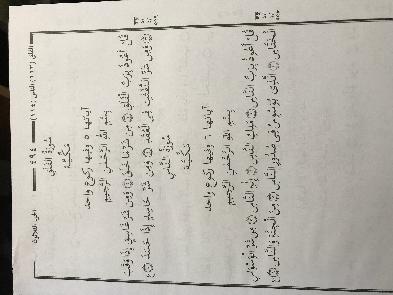 الفلق (١١٣) الناس (١١٤)
٤٩٤
الحزب التلاوة
سُورَةُ الْفَلَقِ
مَكِّيَّة
آياتها ٥ وفيها ركوع واحد
بِسْمِ اللهِ الرَّحْمٰنِ الرَّحِيْمِ
قُلْ أَعُوْذُ بِرَبِّ الْفَلَقِ ① مِنْ شَرِّ مَا خَلَقَ ② وَمِنْ شَرِّ غَاسِقٍ إِذَا وَقَبَ
③ وَمِنْ شَرِّ النَّفّٰثٰتِ فِي الْعُقَدِ ④ وَمِنْ شَرِّ حَاسِدٍ إِذَا حَسَدَ ⑤
سُورَةُ النَّاسِ
مَكِّيَّة
آياتها ٦ وفيها ركوع واحد
بِسْمِ اللهِ الرَّحْمٰنِ الرَّحِيْمِ
قُلْ أَعُوْذُ بِرَبِّ النَّاسِ ① مَلِكِ النَّاسِ ② إِلٰهِ النَّاسِ ③ مِنْ شَرِّ الْوَسْوَاسِ
الْخَنَّاسِ ④ الَّذِيْ يُوَسْوِسُ فِيْ صُدُوْرِ النَّاسِ ⑤ مِنَ الْجِنَّةِ وَالنَّاسِ ⑥